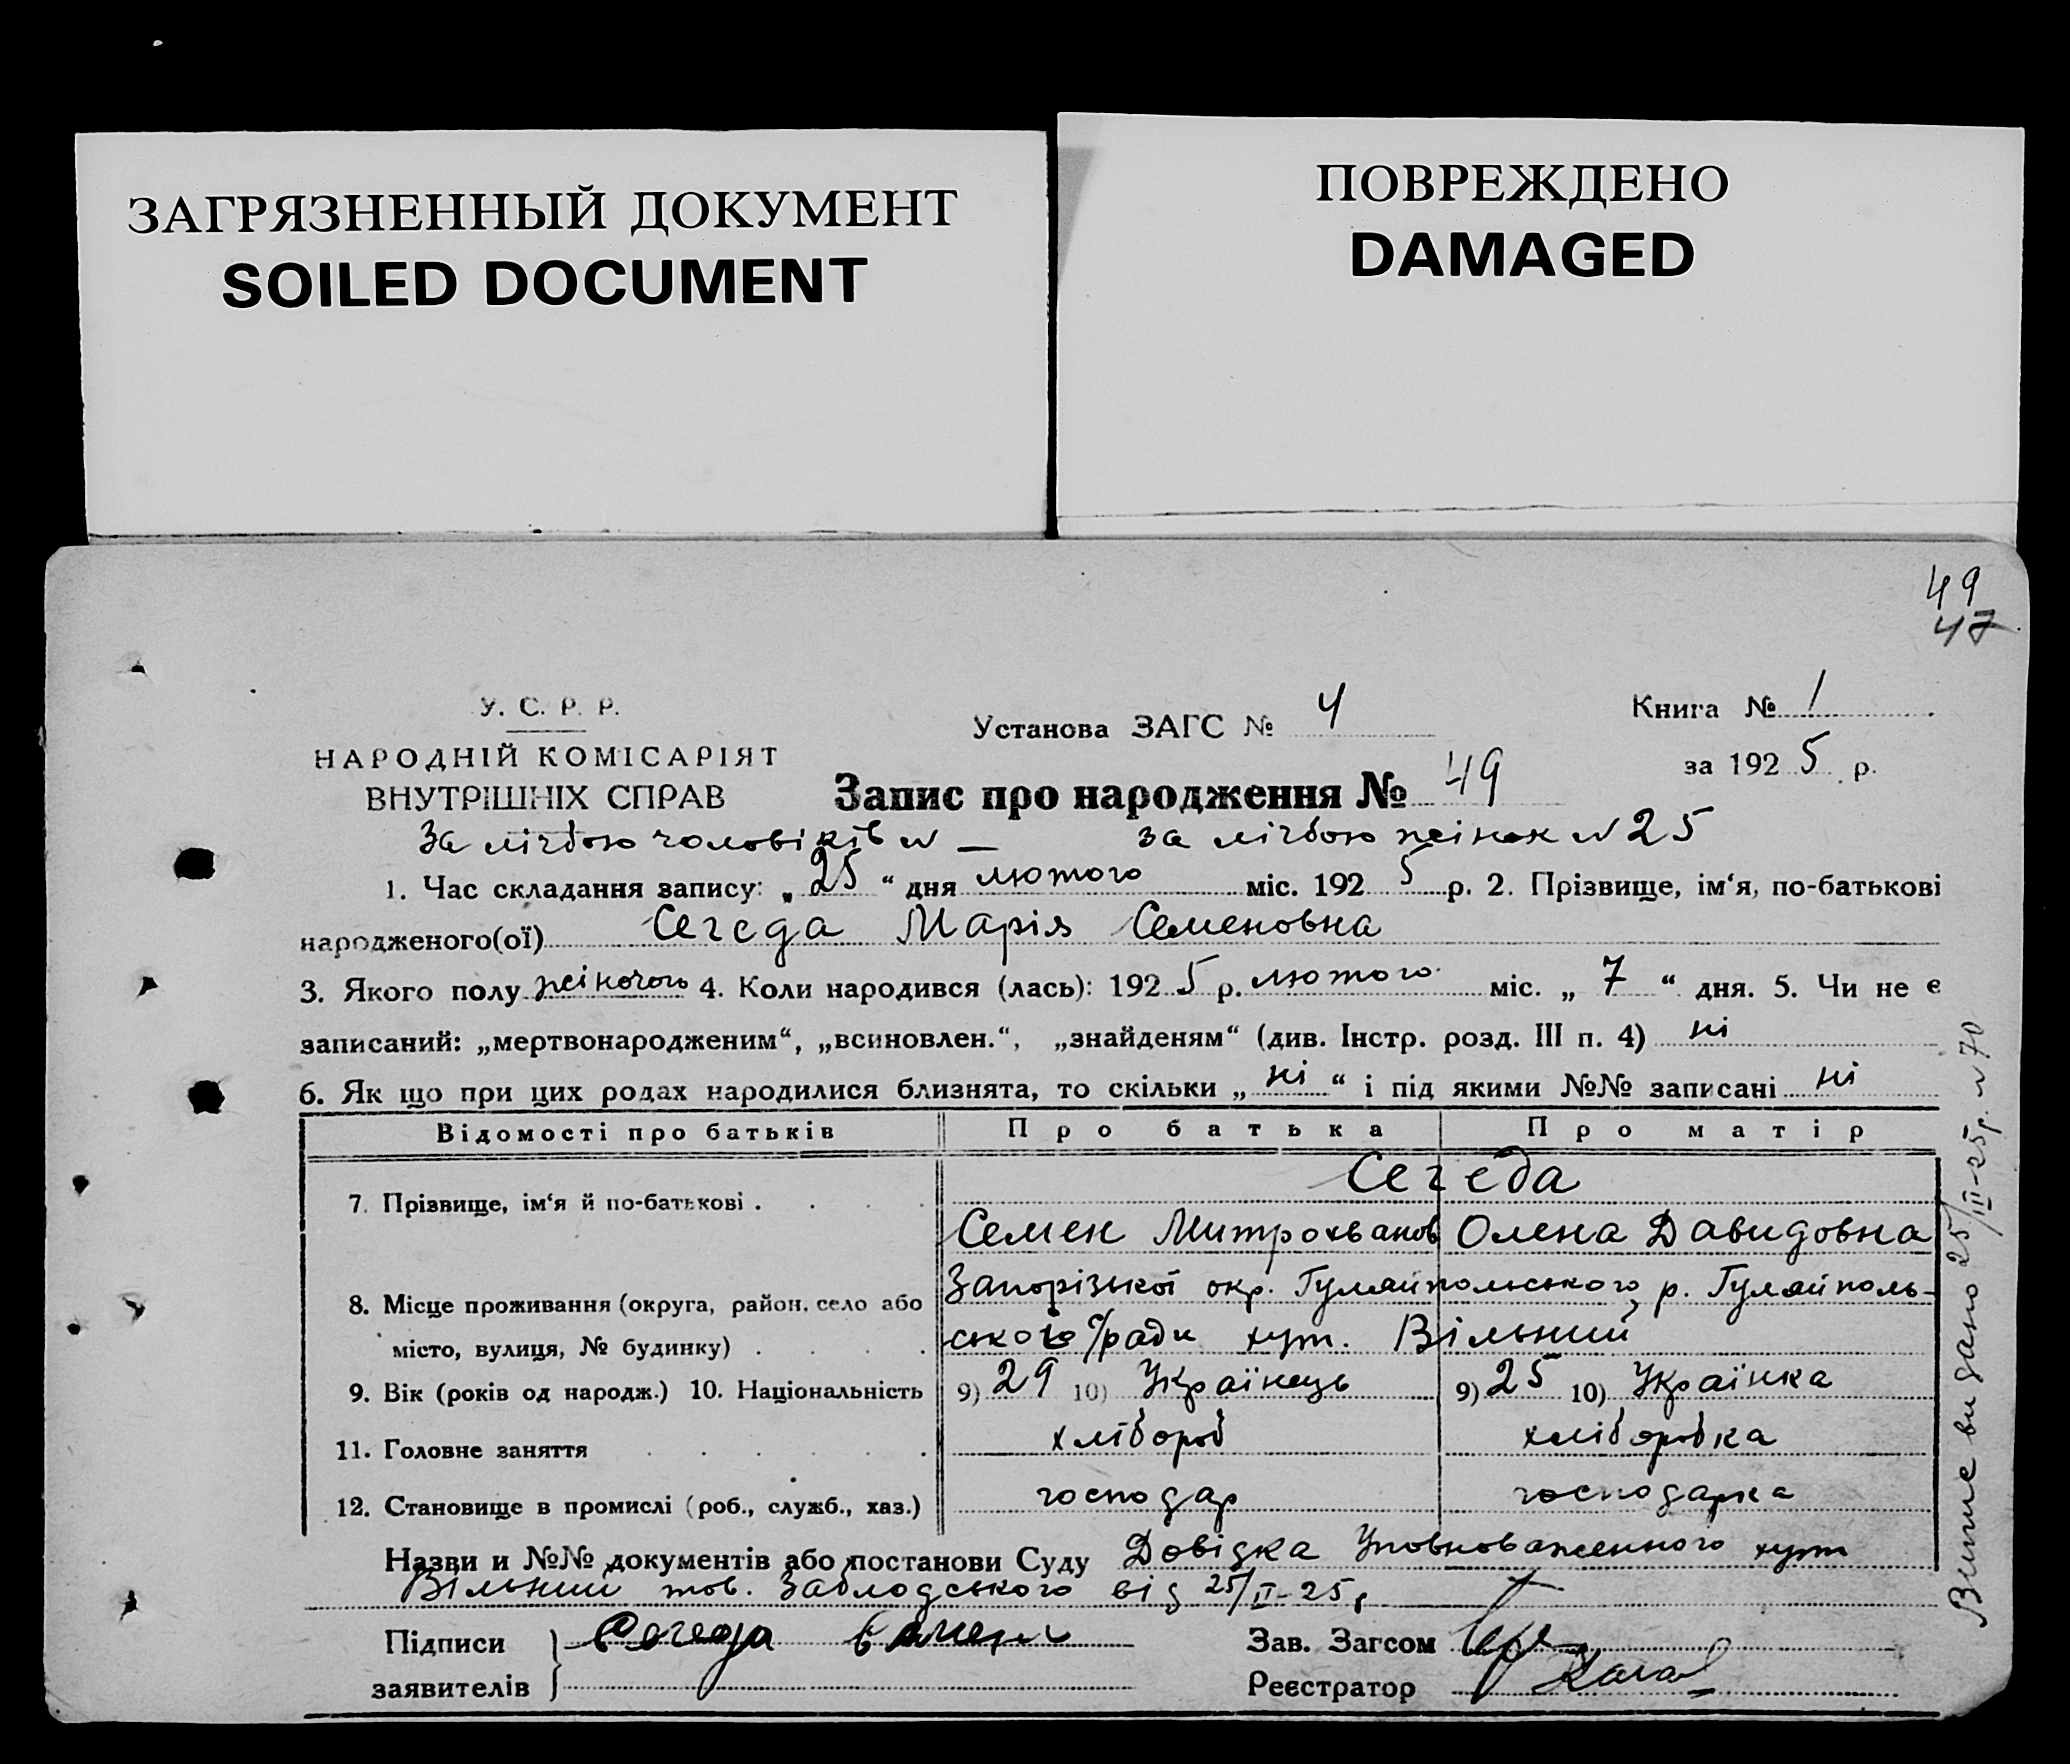 ЗАГРЯЗНЕННЫЙ ДОКУМЕНТ
SOILED DOCUMENT
ПОВРЕЖДЕНО
DAMAGED
49
47
У. С. Р. Р.
НАРОДНІЙ КОМІСАРІЯТ
ВНУТРІШНІХ СПРАВ
Установа ЗАГС № 4
Книга № 1
за 1925 р.
Запис про народження № 49
За лічбою чоловіків № — за лічбою жінок № 25
1. Час складання запису: „25“ дня лютого міс. 1925 р. 2. Прізвище, ім‘я, по-батькові
народженого(ої) Сегеда Марія Семеновна
3. Якого полу жіночого 4. Коли народився (лась): 1925 р. лютого міс. „7“ дня. 5. Чи не є
записаний: „мертвонародженим“, „всиновлен.“, „знайденям“ (див. Інстр. розд. III п. 4) ні
6. Як що при цих родах народилися близнята, то скільки „ні“ і під якими №№ записані ні
Відомості про батьків Про батька Про матір
Сегеда
7. Прізвище, ім‘я й по-батькові .
Семен Митрохванов Олена Давидовна
8. Місце проживання (округа, район, село або Запорізької окр. Гуляйпольського р. Гуляйполь-
місто, вулиця, № будинку) . ського с/ради хут. Вільний
9. Вік (років од народж.) 10. Національність 9) 29 10) Українець 9) 25 10) Українка
11. Головне заняття хлібороб хліборобка
12. Становище в промислі (роб., служб., хаз.) господар господарка
Назви и №№ документів або постанови Суду Довідка Уповноваженного хут
Вільний тов. Заблодського від 25/II-25 р
Підписи Сегеда Семен Зав. Загсом
заявителів Реєстратор
Випис видано 25/II-25 р. № 70